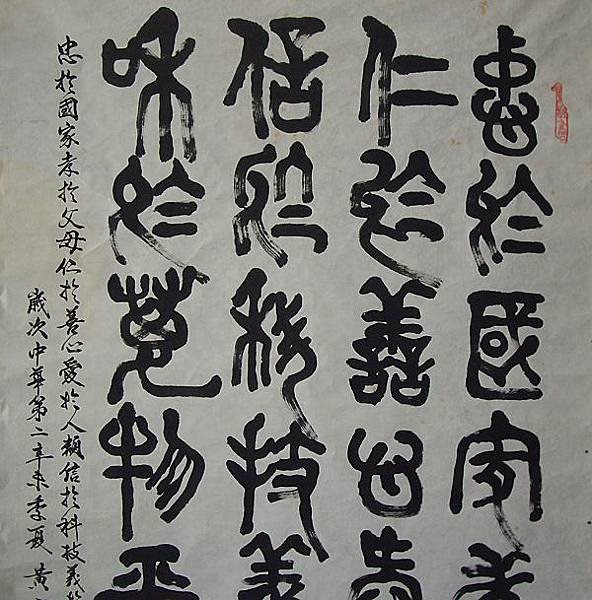 忠於國家孝
仁於善心愛
信於科技義
和於萬物平
忠於國家孝於父母仁於善心愛於人類信於科技義於
歲次中華第二辛未季夏黃